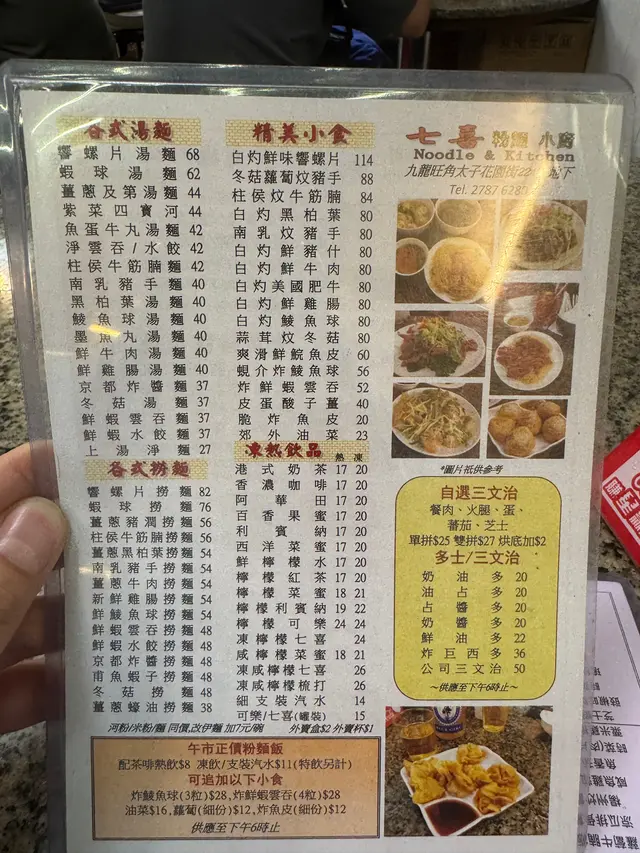 各式湯麵
響螺片湯麵 68
蝦球湯麵 62
薑蔥及第湯麵 44
紫菜四寶河 44
魚蛋牛丸湯麵 42
淨雲吞/水餃 42
柱侯牛筋腩麵 42
南乳豬手麵 40
黑柏葉湯麵 40
鯪魚球湯麵 40
墨魚丸湯麵 40
鮮牛肉湯麵 40
鮮雞腸湯麵 40
京都炸醬麵 37
冬菇湯麵 37
鮮蝦雲吞麵 37
鮮蝦水餃麵 37
上湯淨麵 27
各式撈麵
響螺片撈麵 82
蝦球撈麵 76
薑蔥豬潤撈麵 56
柱侯牛筋腩撈麵 56
薑蔥黑柏撈麵 54
南乳豬手撈麵 54
薑蔥牛肉撈麵 54
新鮮雞腸撈麵 54
鮮鯪魚球撈麵 54
鮮蝦雲吞撈麵 48
鮮蝦水餃撈麵 48
京都炸醬撈麵 48
甫魚蝦子撈麵 48
冬菇撈麵 48
薑蔥蠔油撈麵 38
精美小食
白灼鮮味響螺片 114
冬菇蘿蔔炆豬手 88
柱侯炆牛筋腩 84
白灼黑柏葉 80
南乳炆豬手 80
白灼鮮豬什 80
白灼鮮牛肉 80
白灼美國肥牛 80
白灼鮮雞腸 80
白灼鯪魚球 80
蒜茸炆冬菇 80
爽滑鮮鯇魚皮 60
蜆介炸鯪魚球 56
炸鮮蝦雲吞 52
皮蛋酸子薑 40
脆炸魚皮 20
郊外油菜 23
凍熱飲品
熱 凍
港式奶茶 17 20
香濃咖啡 17 20
阿華田 17 20
百香果蜜 17 20
利賓納 17 20
西洋菜蜜 17 20
鮮檸檬水 17 20
檸檬紅茶 17 20
檸檬菜蜜 18 21
檸檬利賓納 19 22
檸檬可樂 24 24
凍檸檬七喜 24
咸檸檬菜蜜 18 21
凍咸檸檬七喜 26
凍咸檸檬梳打 26
細支裝汽水 14
可樂/七喜(罐裝) 15
河粉/米粉/麵 同價,改伊麵 加7元/碗 外賣盒$2 外賣杯$1
午市正價粉麵飯
配茶啡熱飲$8 凍飲/支裝汽水$11(特飲另計)
可追加以下小食
炸鯪魚球(3粒)$28,炸鮮蝦雲吞(4粒)$28
油菜$16,蘿蔔(細份)$12,炸魚皮(細份)$12
供應至下午6時止
七喜粉麵小廚
Noodle & Kitchen
九龍旺角太子花園街22
地下
Tel. 2787 6280
*圖片祗供參考
自選三文治
餐肉、火腿、蛋、
蕃茄、芝士
單拼$25 雙拼$27 烘底加$2
多士/三文治
奶油多 20
油占多 20
占醬多 20
奶醬多 20
鮮油多 22
炸巨西多 36
公司三文治 50
～供應至下午6時止～